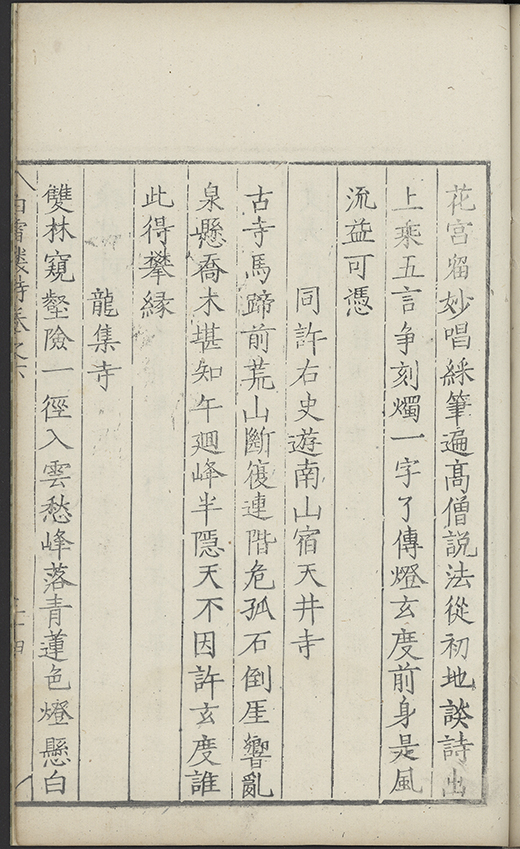 花宮留妙唱綵筆遍髙僧説法從初地談詩出
上乘五言争刻燭一字了傳燈玄度前身是風
流益可憑
同許右史遊南山宿天井寺
古寺馬蹄前荒山斷復連階危孤石倒厓響亂
泉懸喬木堪知午廻峰半隱天不因許玄度誰
此得攀縁
龍集寺
雙林窺壑險一徑入雲愁峰落青蓮色燈懸白
白雪樓詩卷之六